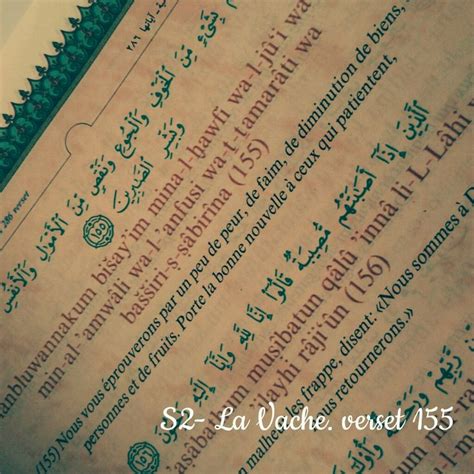 آياتها ٢٨٦
286 verset
بِشَيْءٍ مِّنَ ٱلْخَوْفِ وَٱلْجُوعِ وَنَقْصٍ مِّنَ ٱلْأَمْوَٰلِ وَٱلْأَنفُسِ
وَبَشِّرِ ٱلصَّٰبِرِينَ ١٥٥
anabluwannakum bišay'im mina-l-ḫawfi wa-l-jû'i wa
min-al-'amwâli wa-l-'anfusi wa-ṯ-ṯamarâti wa
bašširi-ṣ-ṣâbirîna (155)
(155) Nous vous éprouverons par un peu de peur, de faim, de diminution de biens,
personnes et de fruits. Porte la bonne nouvelle à ceux qui patientent,
ٱلَّذِينَ إِذَآ أَصَٰبَتْهُم مُّصِيبَةٌ قَالُوٓا۟ إِنَّا لِلَّهِ وَإِنَّآ إِلَيْهِ
١٥٦
aṣâbathum muṣîbatun qâlû 'innâ li-L-Lâhi
ilayhi râji'ûn (156)
un malheur les frappe, disent: «Nous sommes à
nous retournerons.»
S2- La Vache. verset 155